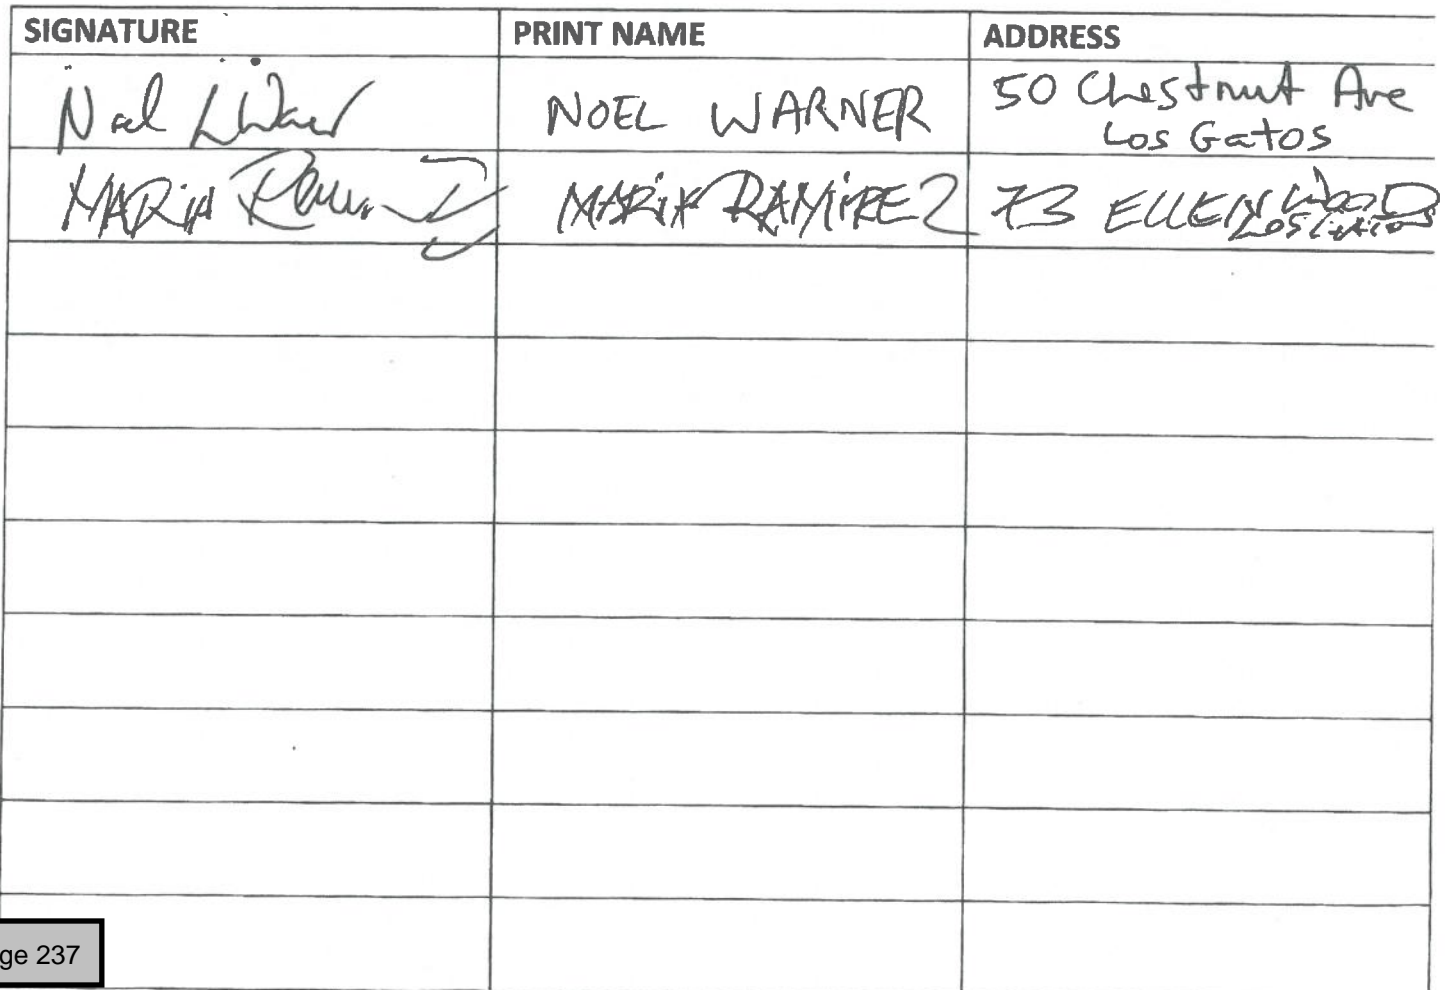 SIGNATURE PRINT NAME ADDRESS
Noel NOEL WARNER 50 Chestnut Ave
Los Gatos
MARIA RAMIREZ 73 ELLENWOOD
Los Gatos
ge 237